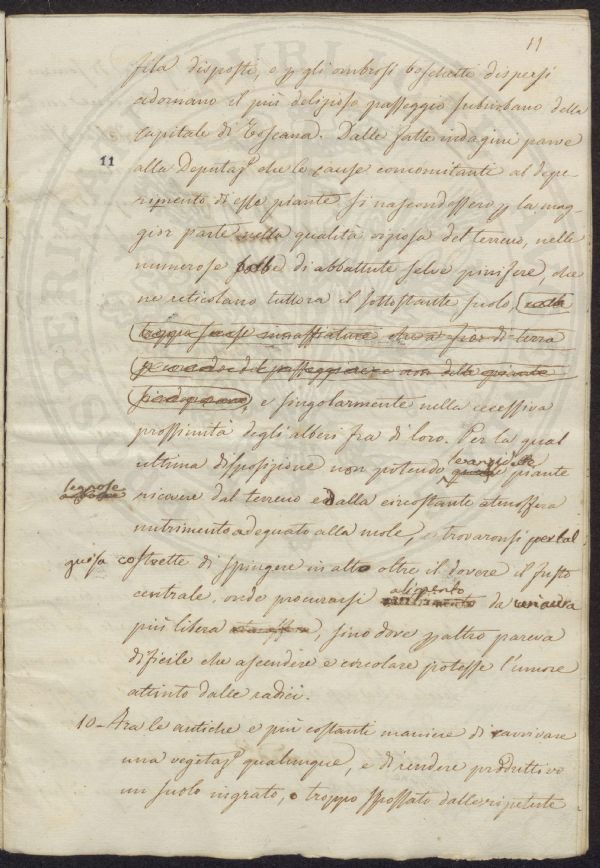 11
fila disposti, e p gli ombrosi boschetti dispersi
adornano il più delizioso passeggio suburbano della
Capitale di Toscana. Dalle fatte indagini parve
11
alla Deputaz.e che le cause concomitanti al depe-
rimento di esse piante si nascondessero p la mag-
gior parte nella qualità cioposa del terreno, nelle
numerose di abbattute selve pinifere, che
ne reticolano tuttora il sottostante suolo,
troppo scarse innaffiature che a fior di terra
passeggiare
e singolarmente nella eccessiva
prossimità degli alberi fra di loro. Per la qual
ultima disposizione non potendo piante
legnose
ricevere dal terreno e dalla circostante atmosfera
nutrimento adeguato alla mole, trovaronsi per tal
guisa costrette di spingere in alto oltre il dovere il fusto
alimento
centrale, onde procurarsi da un'aura
più libera, sino dove p altro pareva
dificile che ascendere e circolare potesse l'umore
attinto dalle radici.
10 - Fra le antiche e più costante maniere di ravvivare
una vegetaz.e qualunque, e di rendere produttivo
un suolo ingrato, o troppo spossato dalle ripetute